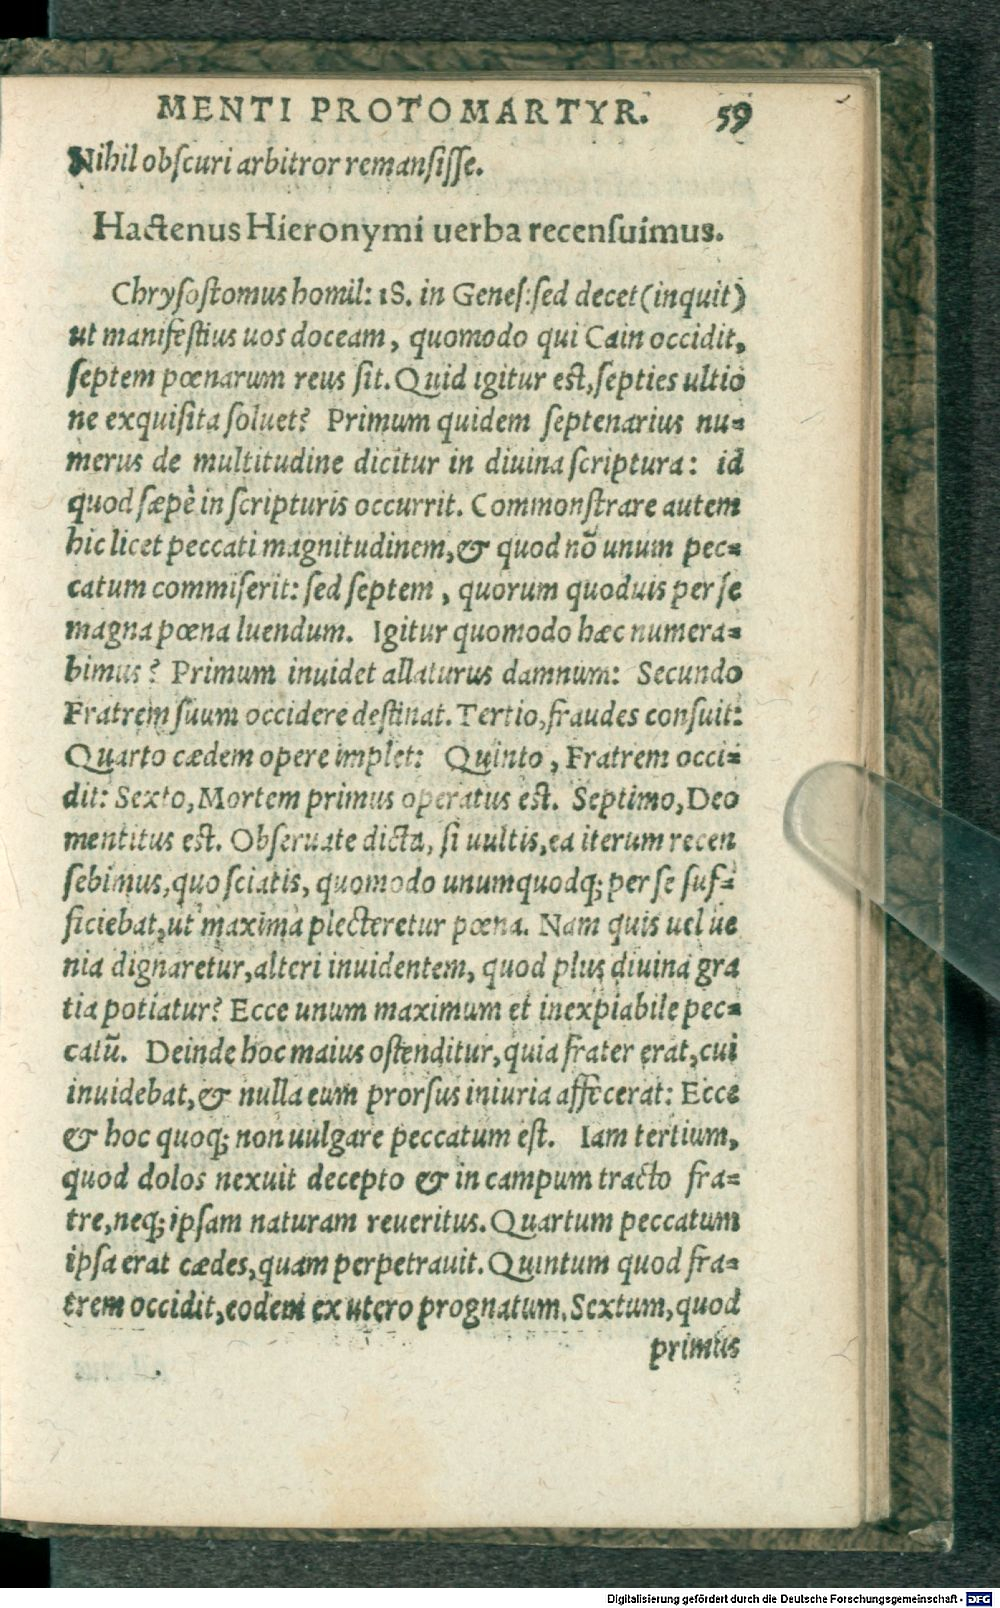 MENTI PROTOMARTYR. 59
Nihil obſcuri arbitror remanſiſſe.
Hactenus Hieronymi uerba recenſuimus.
Chryſoſtomus homil: 18. in Geneſ: ſed decet (inquit)
ut manifeſtius uos doceam, quomodo qui Cain occidit,
ſeptem pœnarum reus ſit. Quid igitur eſt, ſepties ultio
ne exquiſita ſoluet? Primum quidem ſeptenarius nu=
merus de multitudine dicitur in diuina ſcriptura: id
quod ſæpè in ſcripturis occurrit. Commonſtrare autem
hic licet peccati magnitudinem, & quod nõ unum pec=
catum commiſerit: ſed ſeptem, quorum quoduis per ſe
magna pœna luendum. Igitur quomodo hæc numera=
bimus? Primum inuidet allaturus damnum: Secundo
Fratrem ſuum occidere deſtinat. Tertio, fraudes conſuit:
Quarto cædem opere implet: Quinto, Fratrem occi=
dit: Sexto, Mortem primus operatus eſt. Septimo, Deo
mentitus eſt. Obſeruate dicta, ſi uultis, ea iterum recen
ſebimus, quo ſciatis, quomodo unumquodq; per ſe ſuf=
ficiebat, ut maxima plecteretur pœna. Nam quis uel ue
nia dignaretur, alteri inuidentem, quod plus diuina gra
tia potiatur? Ecce unum maximum et inexpiabile pec=
catũ. Deinde hoc maius oſtenditur, quia frater erat, cui
inuidebat, & nulla eum prorſus iniuria affecerat: Ecce
& hoc quoq; non uulgare peccatum eſt. Iam tertium,
quod dolos nexuit decepto & in campum tracto fra=
tre, neq; ipſam naturam reueritus. Quartum peccatum
ipſa erat cædes, quam perpetrauit. Quintum quod fra=
trem occidit, eodem ex utero prognatum. Sextum, quod
primus
Digitalisierung gefördert durch die Deutsche Forschungsgemeinschaft - DFG